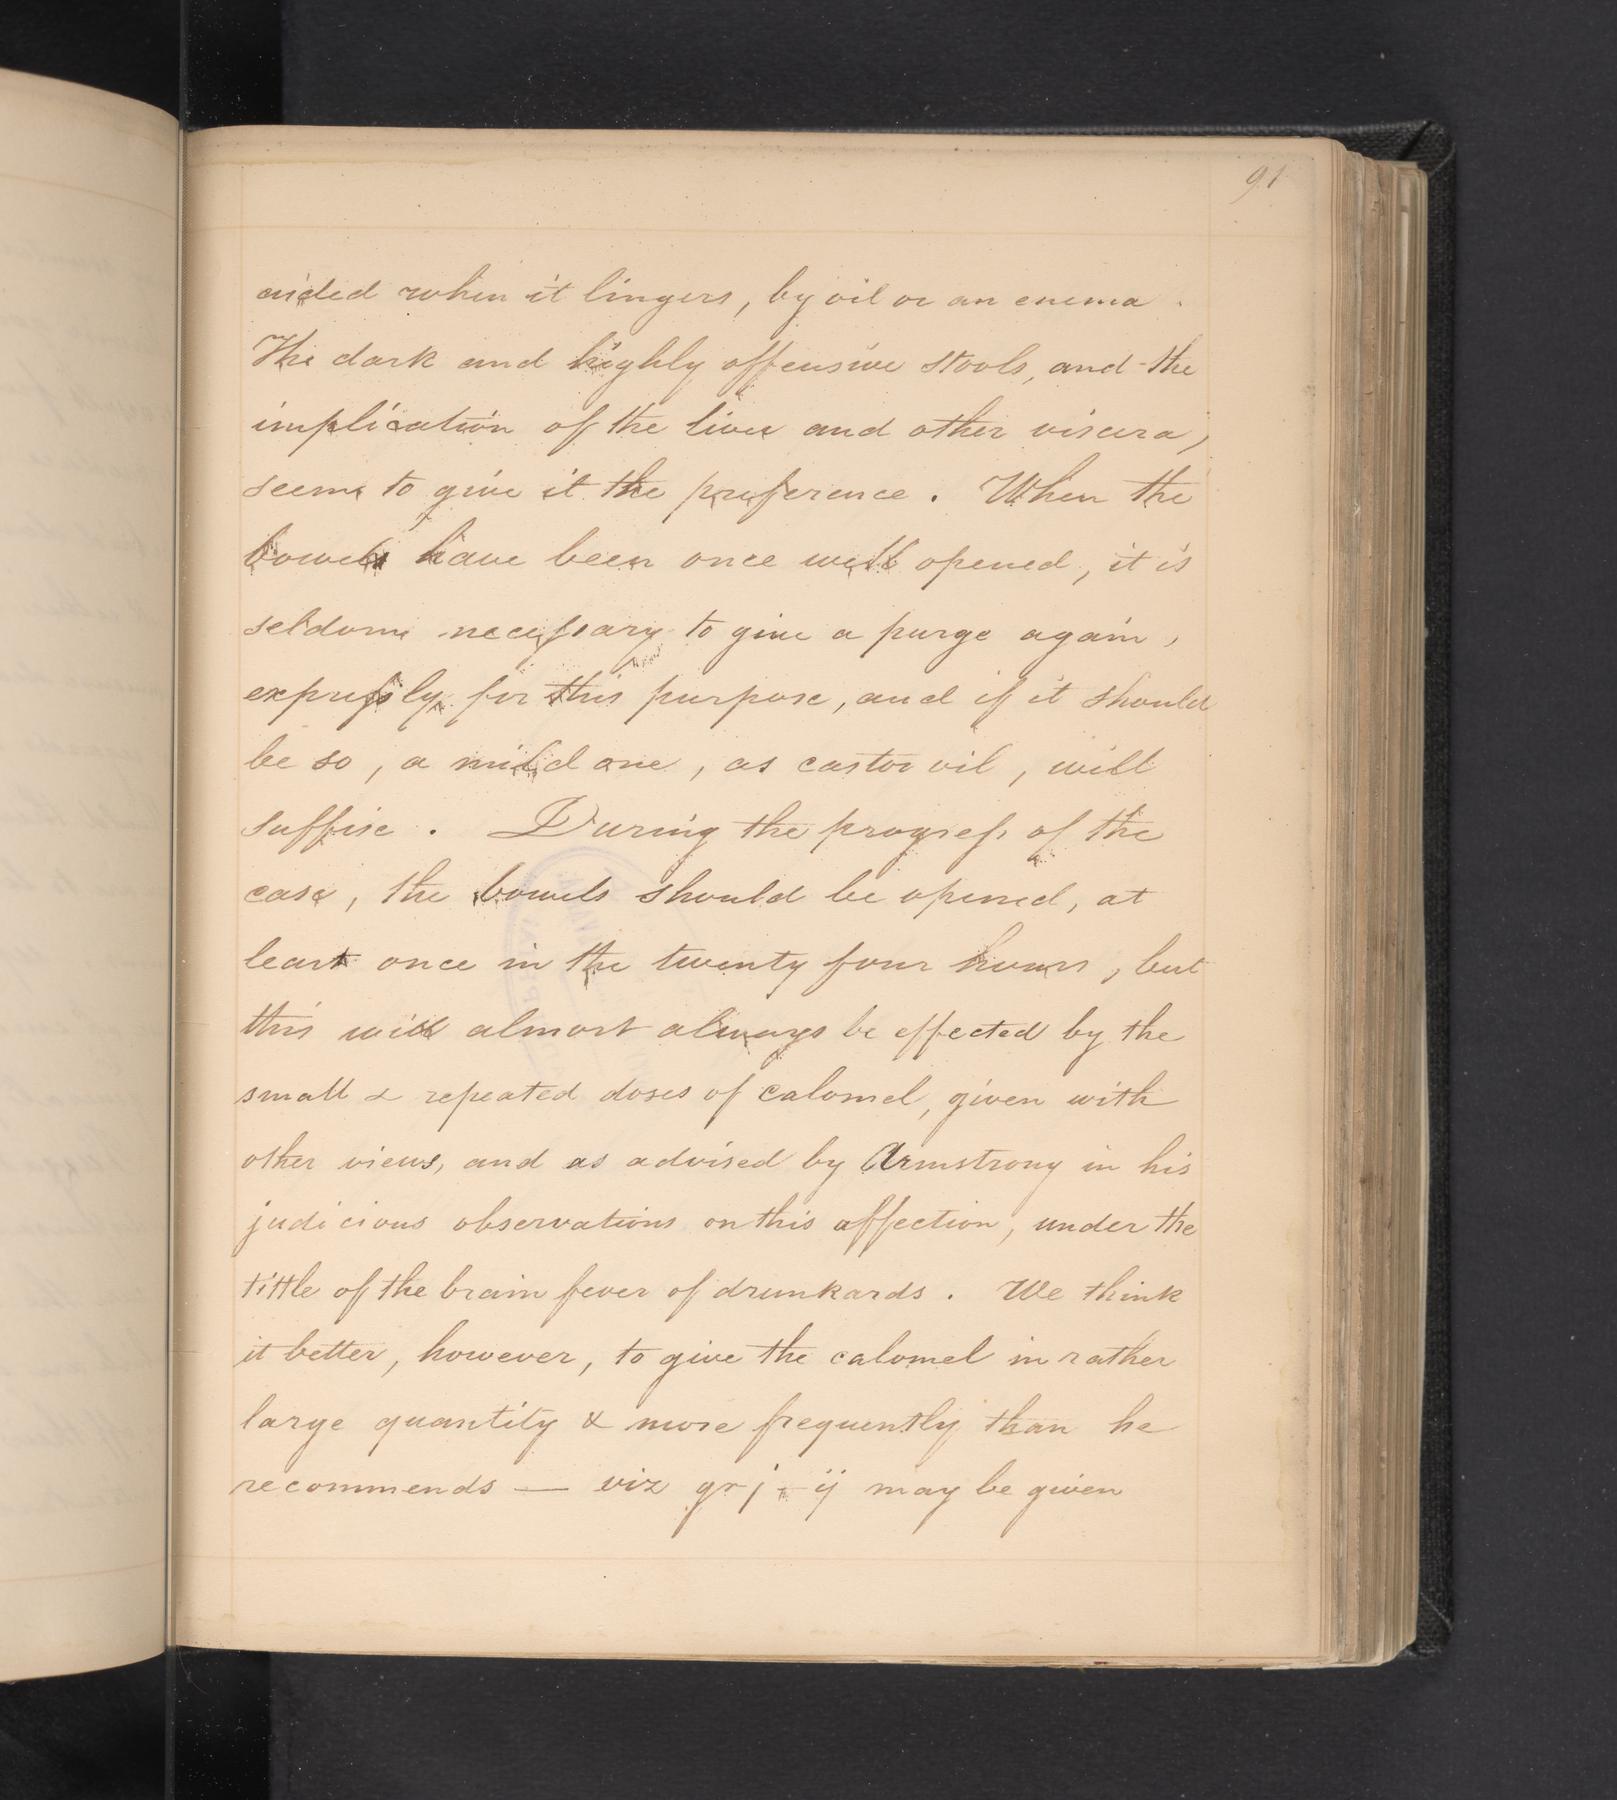 91
aided when it lingers, by oil or an enema.
The dark and highly offensive stools, and the
implication of the liver and other viscera,
seems to give it the preference. When the
bowels have been once well opened, it is
seldom necessary to give a purge again,
expressly for this purpose, and if it should
be so, a mild one, as castor oil, will
suffise. During the progress of the
case, the bowels should be opened, at
least once in the twenty four hours, but
this will almost always be effected by the
small & repeated doses of calomel, given with
other views, and as advised by Armstrong in his
judicious observations on this affection, under the
tittle of the brain fever of drunkards. We think
it better, however, to give the calomel in rather
large quantity & more frequently than he
recommends — viz gr j - ij may be given